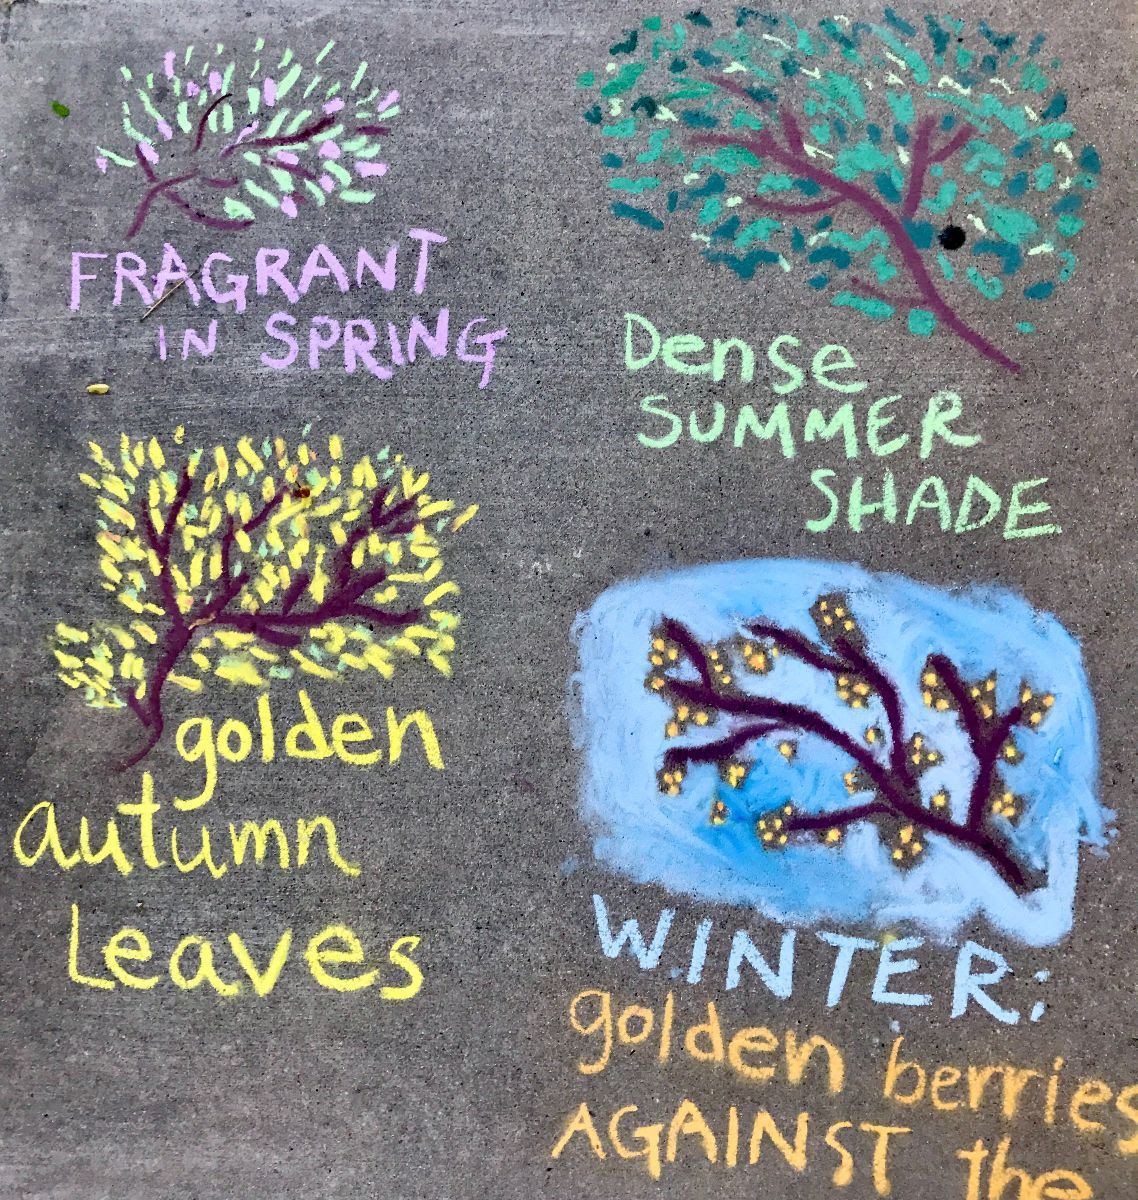 FRAGRANT
IN SPRING
Dense
SUMMER
SHADE
golden
autumn
Leaves
WINTER:
golden berries
AGAINST the